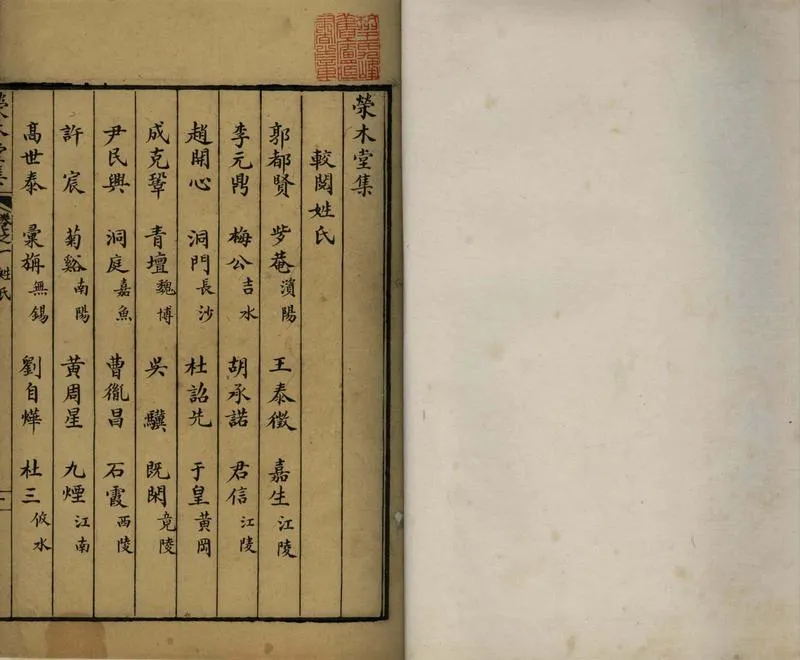 榮木堂集
較閱姓氏
郭都賢 些菴 濱陽 王泰徵 嘉生 江陵
李元鼎 梅公 吉水 胡承諾 君信 江陵
趙開心 洞門 長沙 杜詔先 于皇 黃岡
成克鞏 青壇 魏博 吳驥 既閑 竟陵
尹民興 洞庭 嘉魚 曹胤昌 石霞 西陵
許宸 菊谿 南陽 黃周星 九煙 江南
高世泰 彙旃 無錫 劉自燁 杜三 攸水
榮木堂集 卷之一 姓氏 一